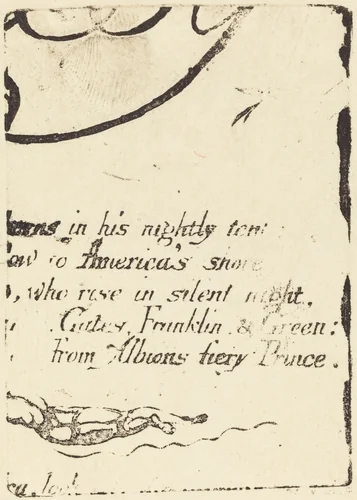 in his nightly tent
ow to America's shore
, who rise in silent night,
Gates, Franklin & Green:
from Albions fiery Prince.